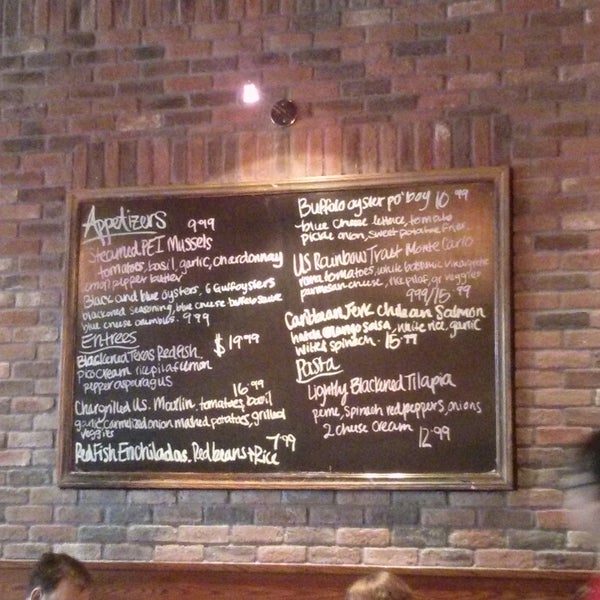 Appetizers 9.99
Steamed PEI Mussels
tomatoes, basil, garlic, chardonnay
lemon pepper butter
Black and blue oysters, 6 Gulf oysters
blackened seasoning, blue cheese buffalo sauce
blue cheese crumbles. 9.99
Entrees
Blackened Texas Redfish, $19.99
Pico Cream rice pilaf
pepper asparagus
16.99
Chargrilled U.S. Marlin tomatoes, basil
garlic Carmelized onion mashed potatoes, grilled
veggies
7.99
Redfish Enchiladas. Red beans + Rice
Buffalo oyster po'boy 10.99
blue cheese lettuce, tomato
pickle onion, sweet potatoe fries
US Rainbow Trout Monte Carlo
roma tomatoes, white balsamic vinaigrette
parmesan cheese, rice pilaf, gr veggies
9.99/15.99
Caribbean Jerk chilean Salmon
mango salsa, white rice, garlic
wilted spinach. 15.99
Pasta
Lightly Blackened Tilapia
penne, spinach red peppers, onions
2 cheese cream 12.99